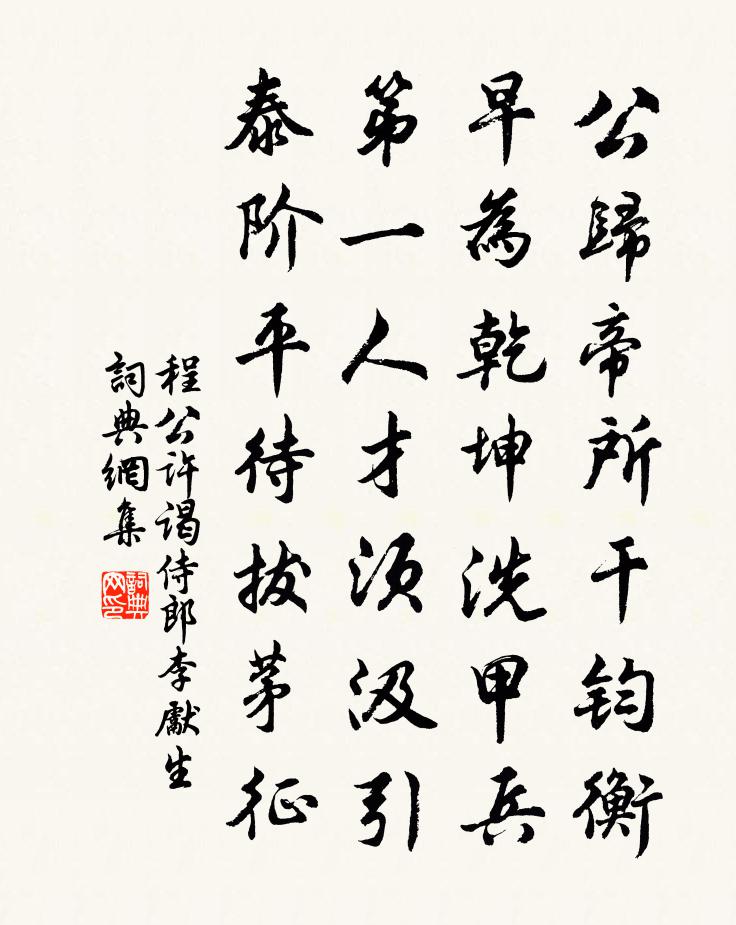 公歸帝所干鈞衡
早為乾坤洗甲兵
第一人才須汲引
泰阶平待拔茅征
程公许謁侍郎李獻生
詞典網集
詞典网印